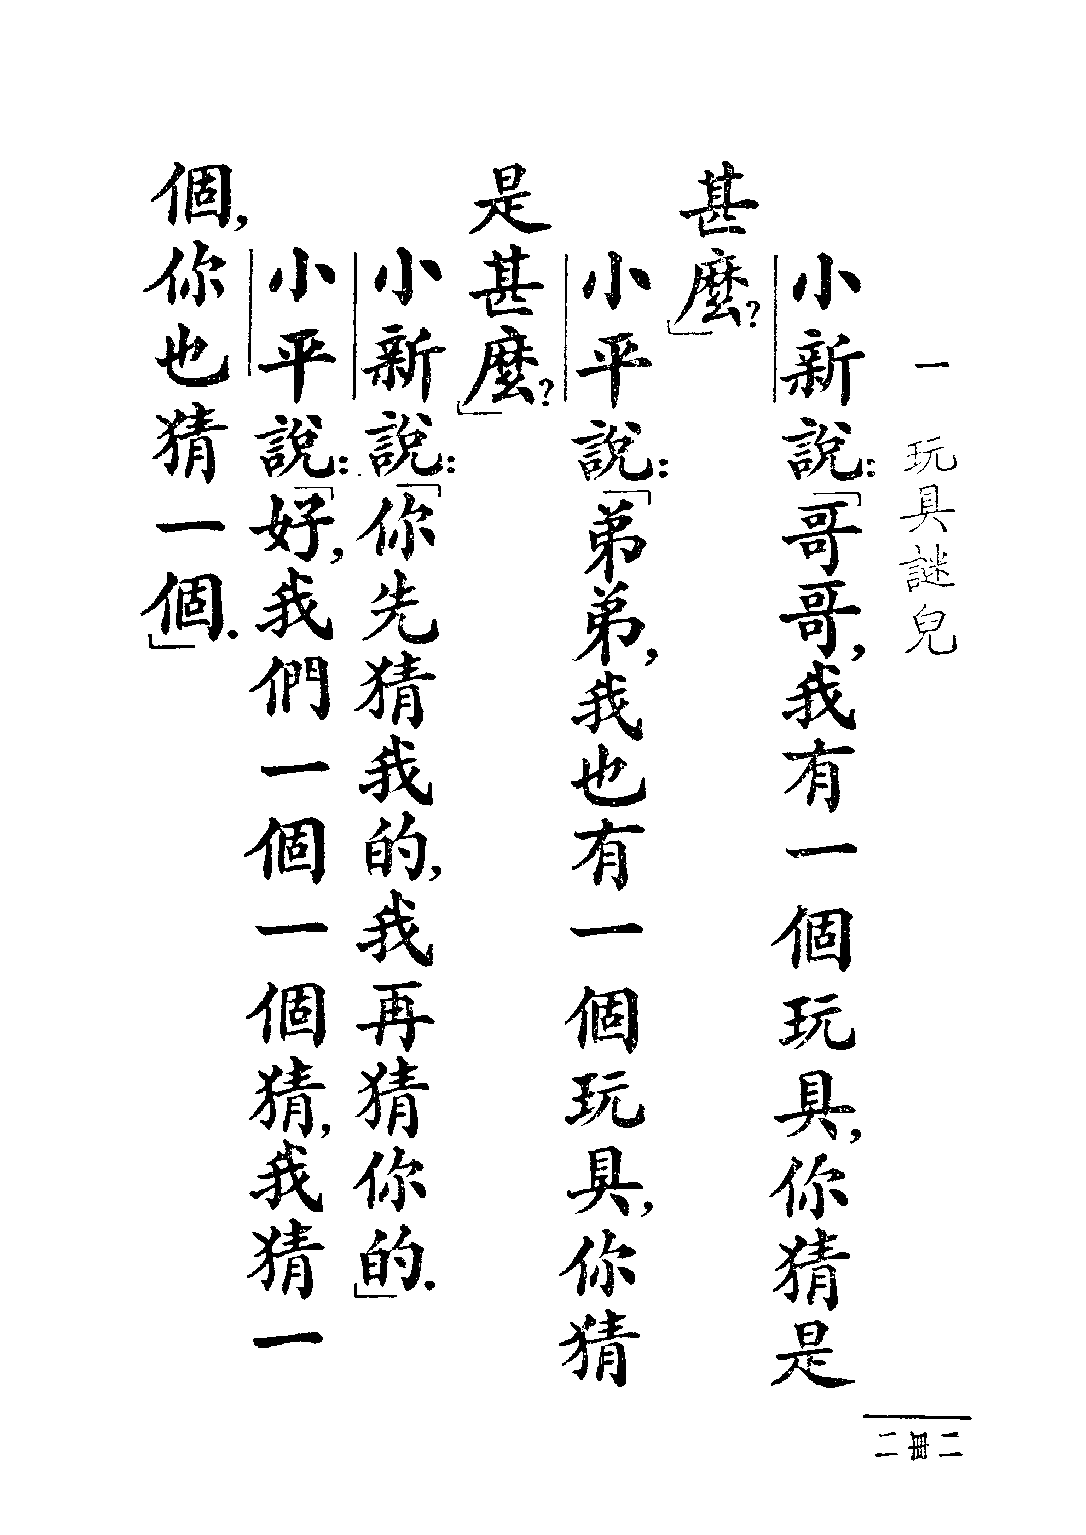 一 玩具謎兒
小新說：「哥哥，我有一個玩具，你猜是
甚麼？」
小平說：「弟弟，我也有一個玩具，你猜
是甚麼？」
小新說：「你先猜我的，我再猜你的．」
小平說：「好，我們一個一個猜，我猜一
個，你也猜一個．」
二冊二